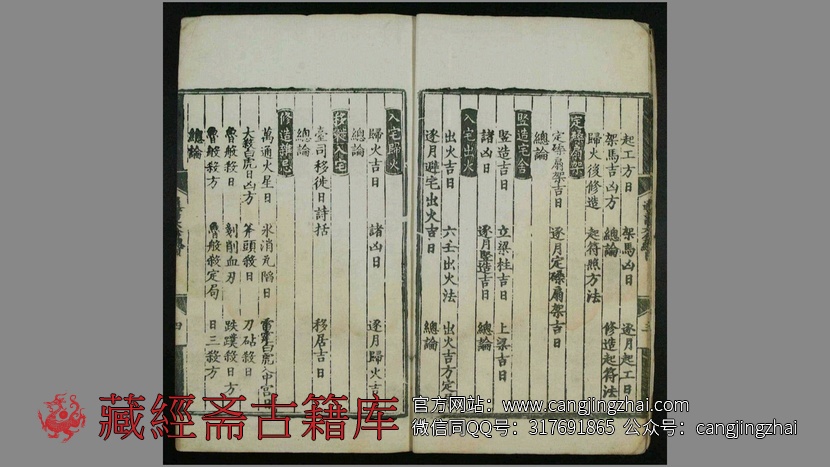 起工方日 架馬凶日 逐月起工日
架馬吉凶方 總論 修造起符法
歸火後修造 起符照方法
定磉扇架
定磉扇架吉日 逐月定磉扇架吉日
總論
竪造宅舍
竪造吉日 立梁柱吉日 上梁吉日
諸凶日 逐月竪造吉日 總論
入宅出火
出火吉日 六壬出火法 出火吉方定
逐月避宅出火吉日 總論
入宅歸火
歸火吉日 諸凶日 逐月歸火吉
總論
移徙入宅
臺司移徙日詩括 移居吉日
總論
修造雜忌
萬通火星日 氷消瓦陷日 白虎入中宮
大殺白虎日凶方 斧頭殺日 刀砧殺日
魯般殺日 剗削血刃 跌蹼殺日方
魯般殺方 魯般殺定局 日三殺方
總論
四
藏經斋古籍库
官方网站：www.cangjingzhai.com
微信同QQ号：317691865 公众号：cangjingzhai